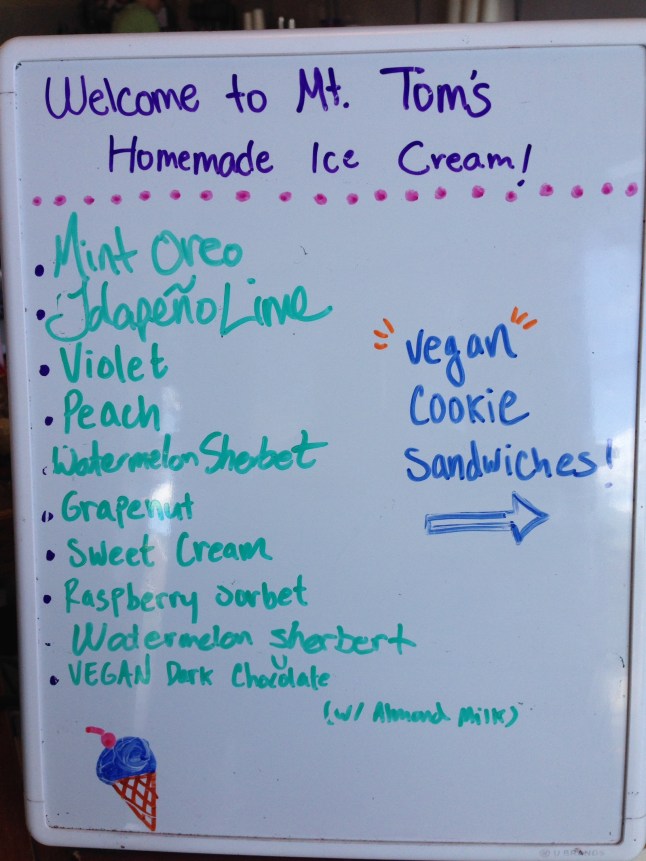 Welcome to Mt. Tom's
Homemade Ice Cream!
• Mint Oreo
• Jalapeño Lime
• Violet
• Peach
• Watermelon Sherbet
• Grapenut
• Sweet Cream
• Raspberry sorbet
• Watermelon sherbert
• VEGAN Dark Chocolate
(w/ Almond Milk)
vegan
Cookie
Sandwiches!
U BRANDS